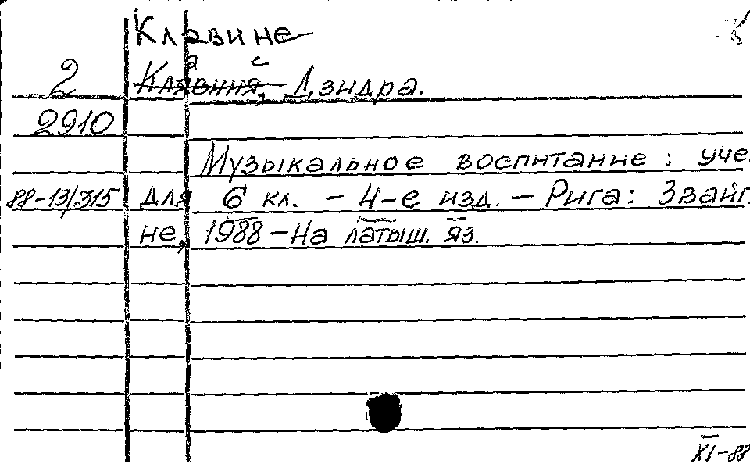 Клавине
2 Клявиня, Дзидра.
2910
Музыкальное воспитание: уче
88-13/315 для 6 кл. - 4-е изд. - Рига: Звайг
не, 1988 - На латыш. яз.
XI-88